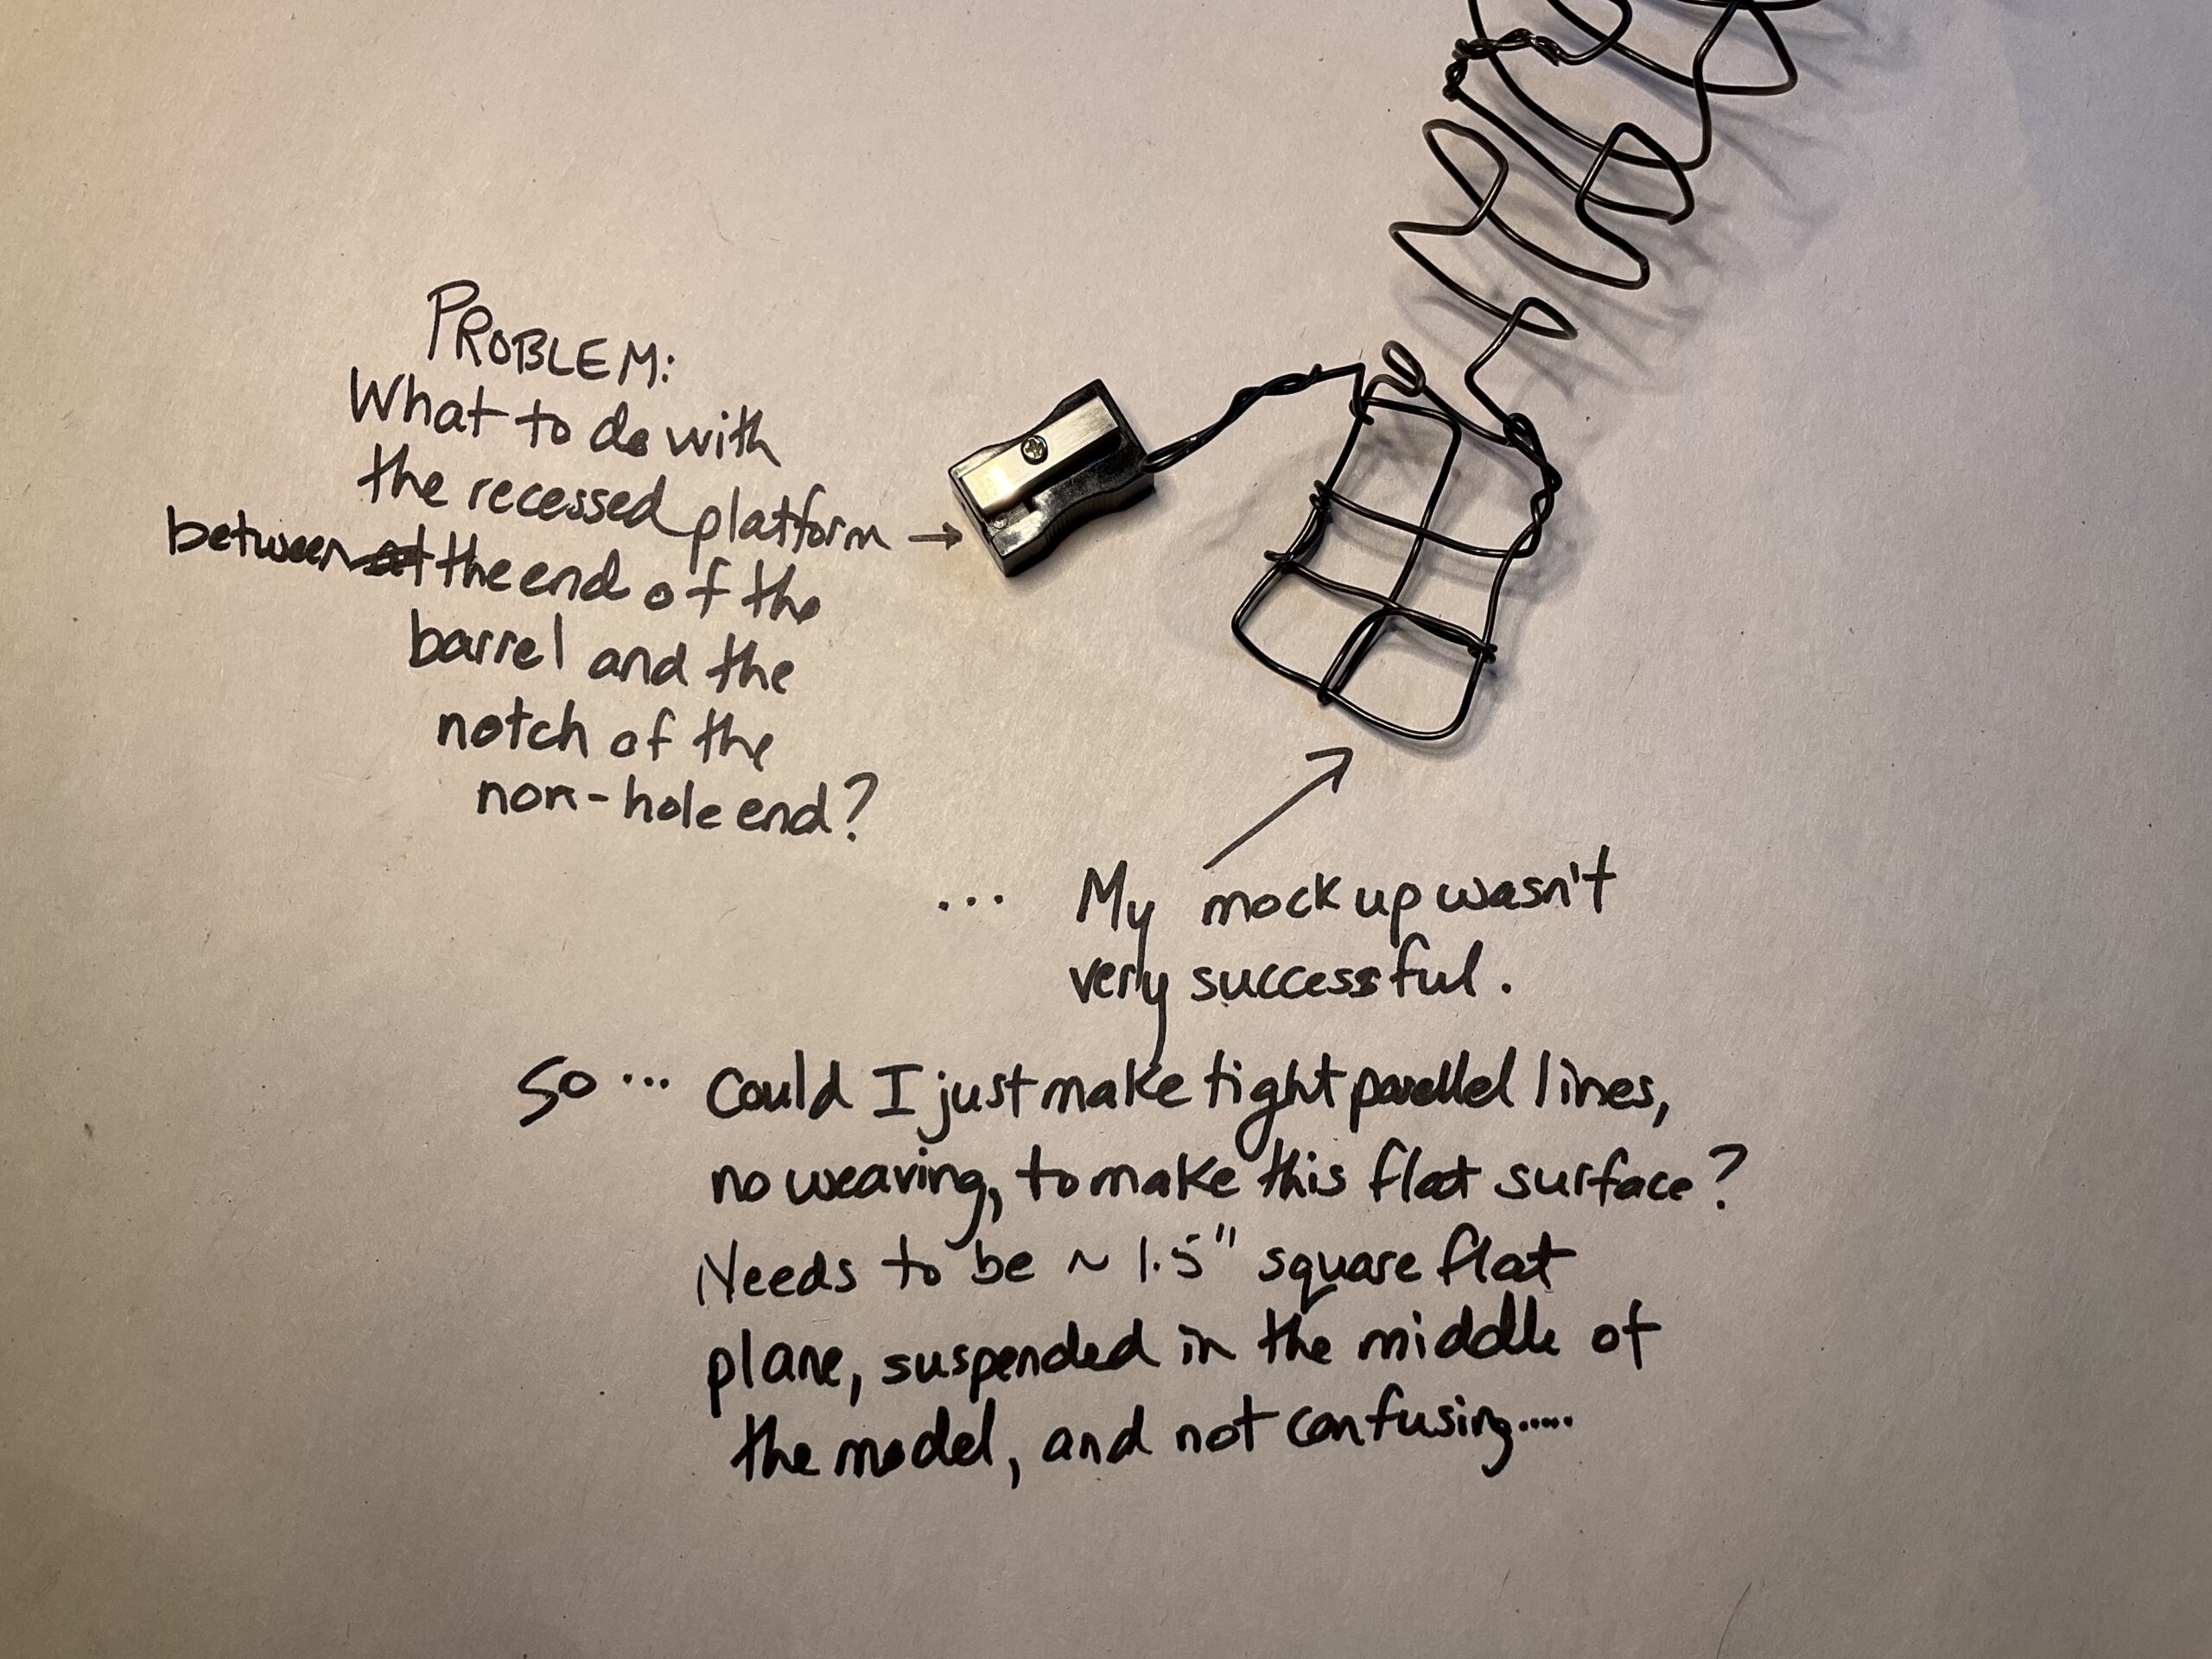 PROBLEM:
What to do with
the recessed platform →
between at the end of the
barrel and the
notch of the
non-hole end?
... My mock up wasn't
very successful.
So ... Could I just make tight parellel lines,
no weaving, to make this flat surface?
Needs to be ~ 1.5" square flat
plane, suspended in the middle of
the model, and not confusing.....